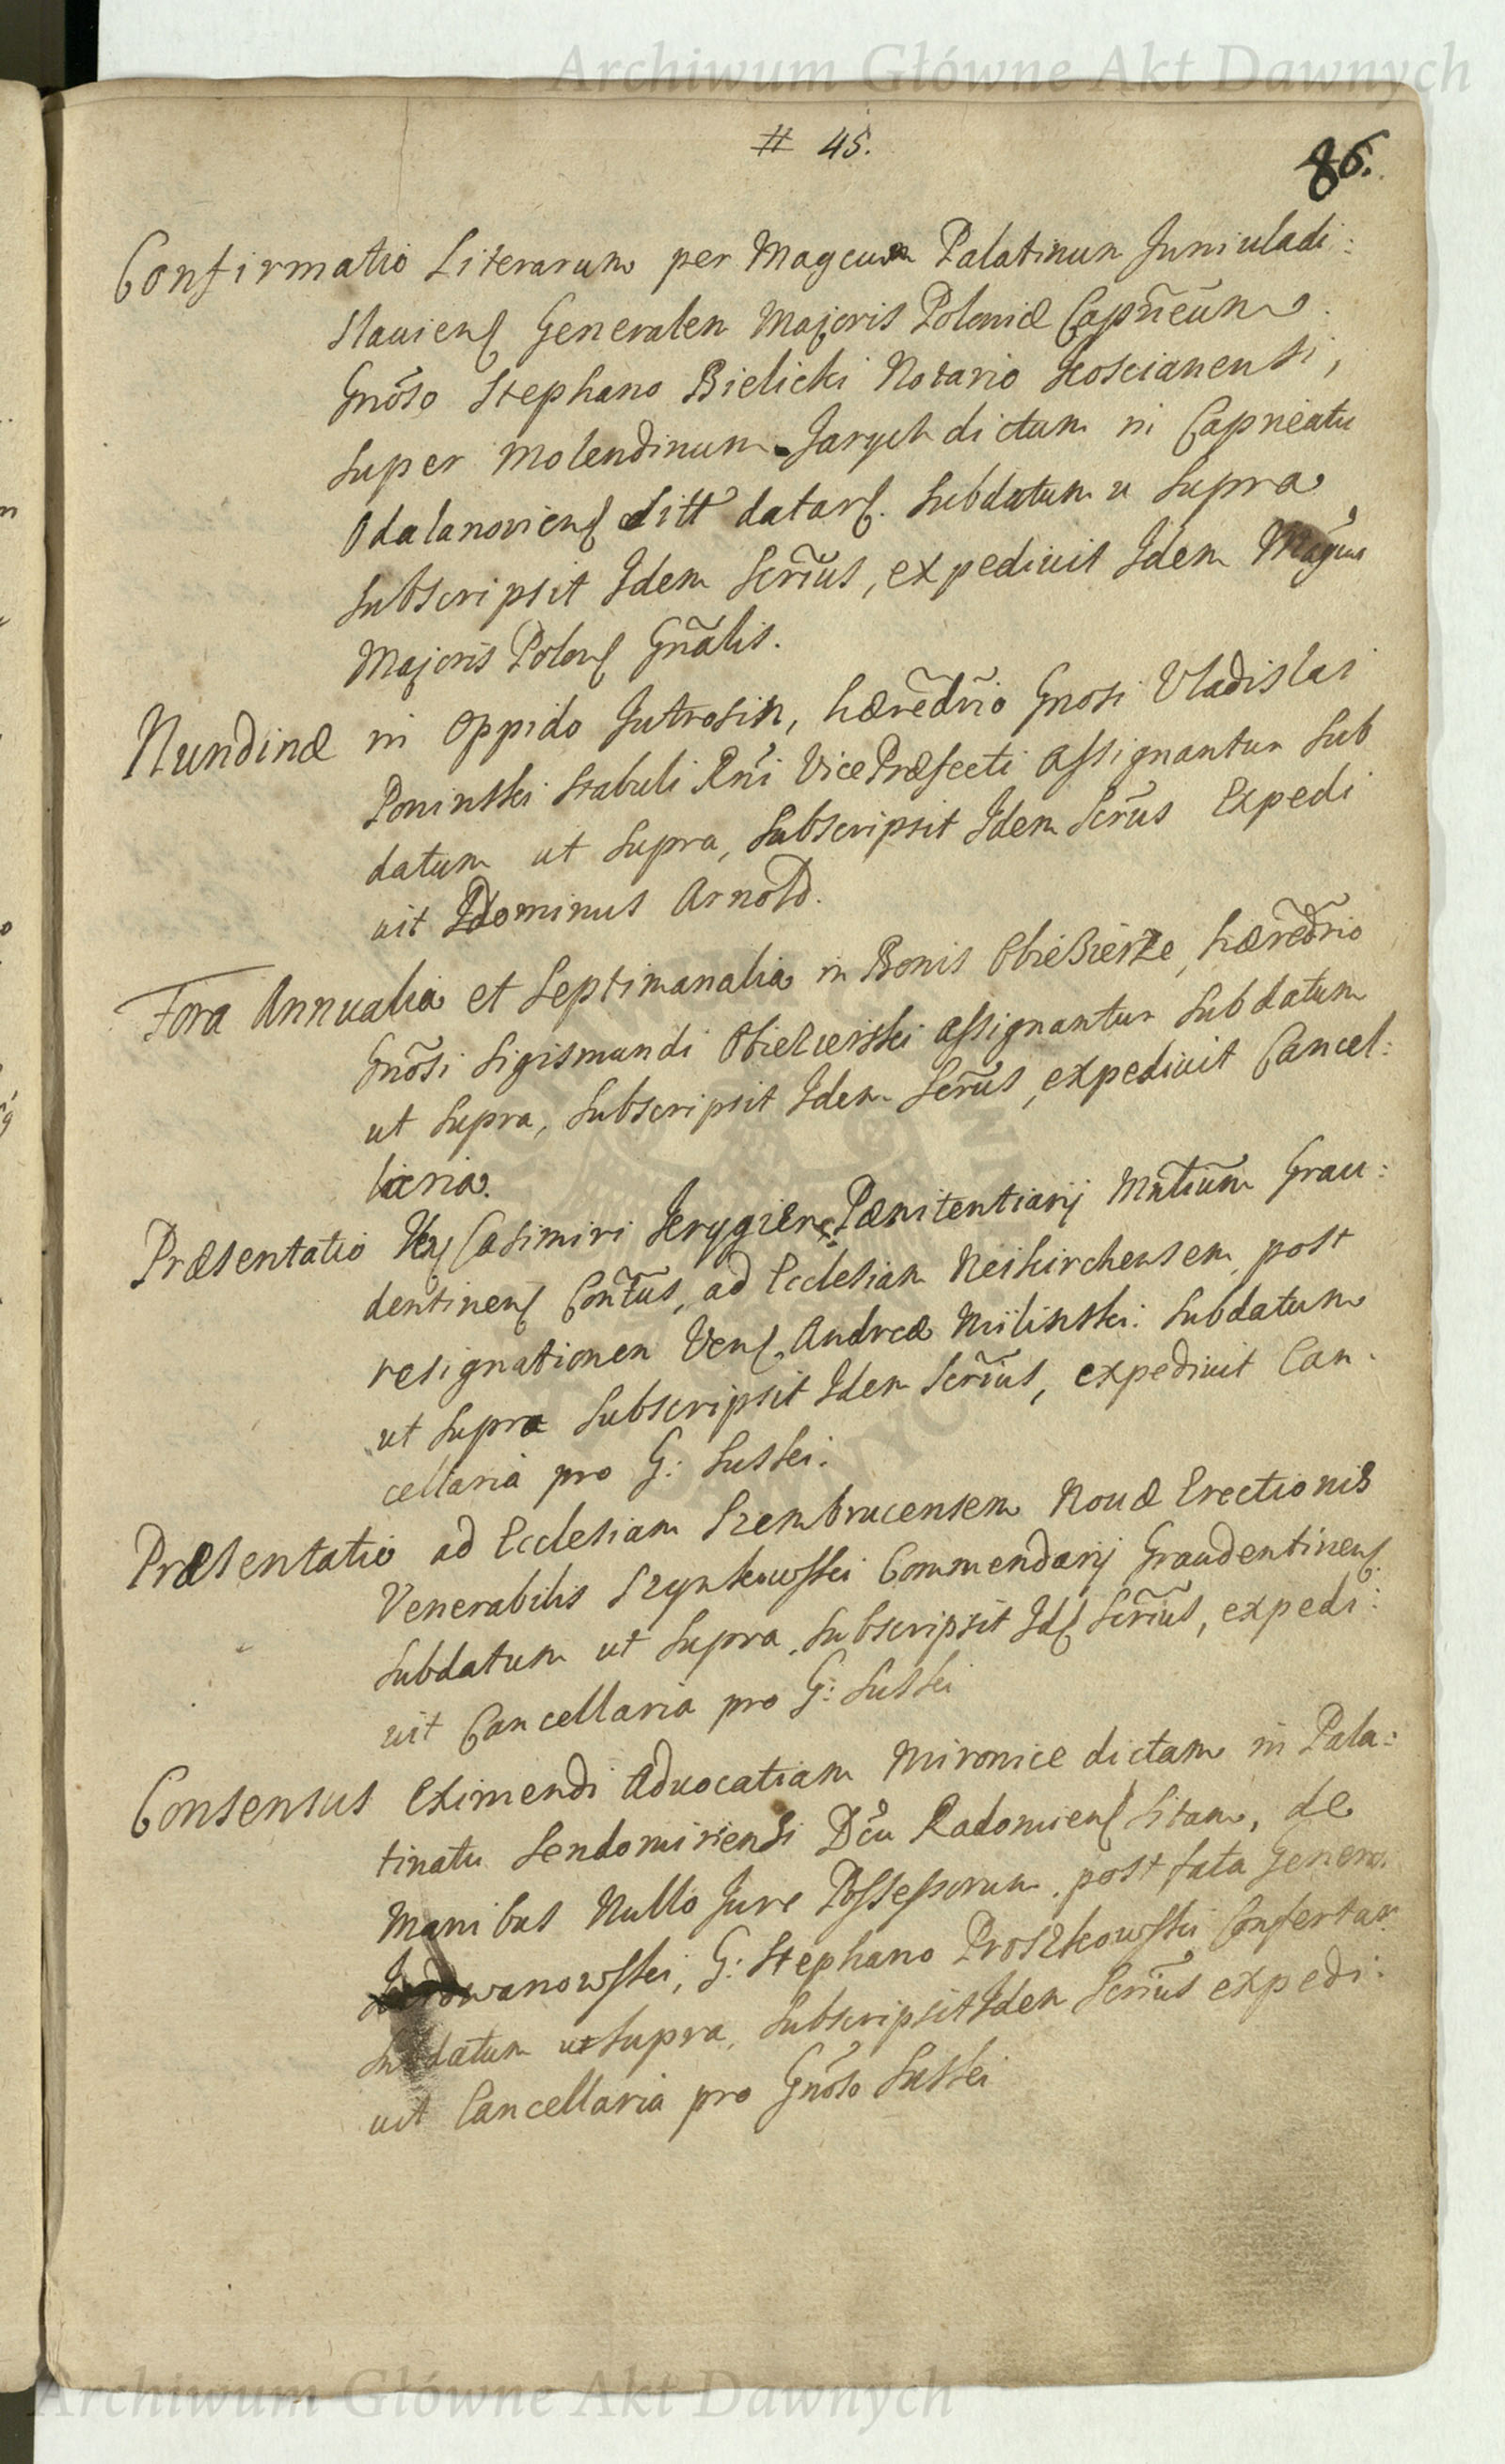 Archiwum Główne Akt Dawnych
# 45.
86.
Confirmatio Literarum per Magcum Palatinum Juniuladi:
slauiens Generalem Majoris Poloniæ Capñeum
Gnõso Stephano Bielicki Notario Koscianensi,
super Molendinum Jarych dictum in Capneatu
Odalanoviens sitt datars. Subdatum u supra
subscripsit Idem Scrĩus, expediuit Idem Magcus
Majoris Polons Gnãlis.
Nundinæ in Oppido Jutrosin, hæredrio Gnosi Vladislai
Poninski stabuli Rni VicePræfecti assignantur sub
datum ut supra, subscripsit Idem Scrius Expedi
uit Dominus Arnold.
Fora Annualia et Septimanalia in Bonis Obiezierze, hæredrio
Gnõsi Sigismundi Obiezierski assignantur subdatum
ut supra, subscripsit Idem Scrius, expediuit Cancel:
laria.
Præsentatio Ven Casimiri Pænitentiarij Mntium Grau:
dentinens Contus, ad Ecclesiam Neikirchensem, post
resignationem Vens Andreæ Milinski: subdatum
ut supra subscripsit Idem Scrĩus, expediuit Can.
cellaria pro G: Suski.
Præsentatio ad Ecclesiam Szembrucensem Nouæ Erectionis
Venerabilis Szynkowski Commendarij Graudentinens.
subdatum ut supra, subscripsit Ids Scrĩus, expedi:
uit Cancellaria pro G: Suski
Consensus Eximendi Aduocatiam Mironice dictam in Pala:
tinatu Sendomiriensi Dcu Radomiens sitam, de
Manibus Nullo Jure Possessorum, post fata Generos.
G: Stephano Proszkowski Confertur.
subdatum ut supra, subscripsit Idem Scrĩus expedi:
uit Cancellaria pro Gnõso Suski
Archiwum Główne Akt Dawnych